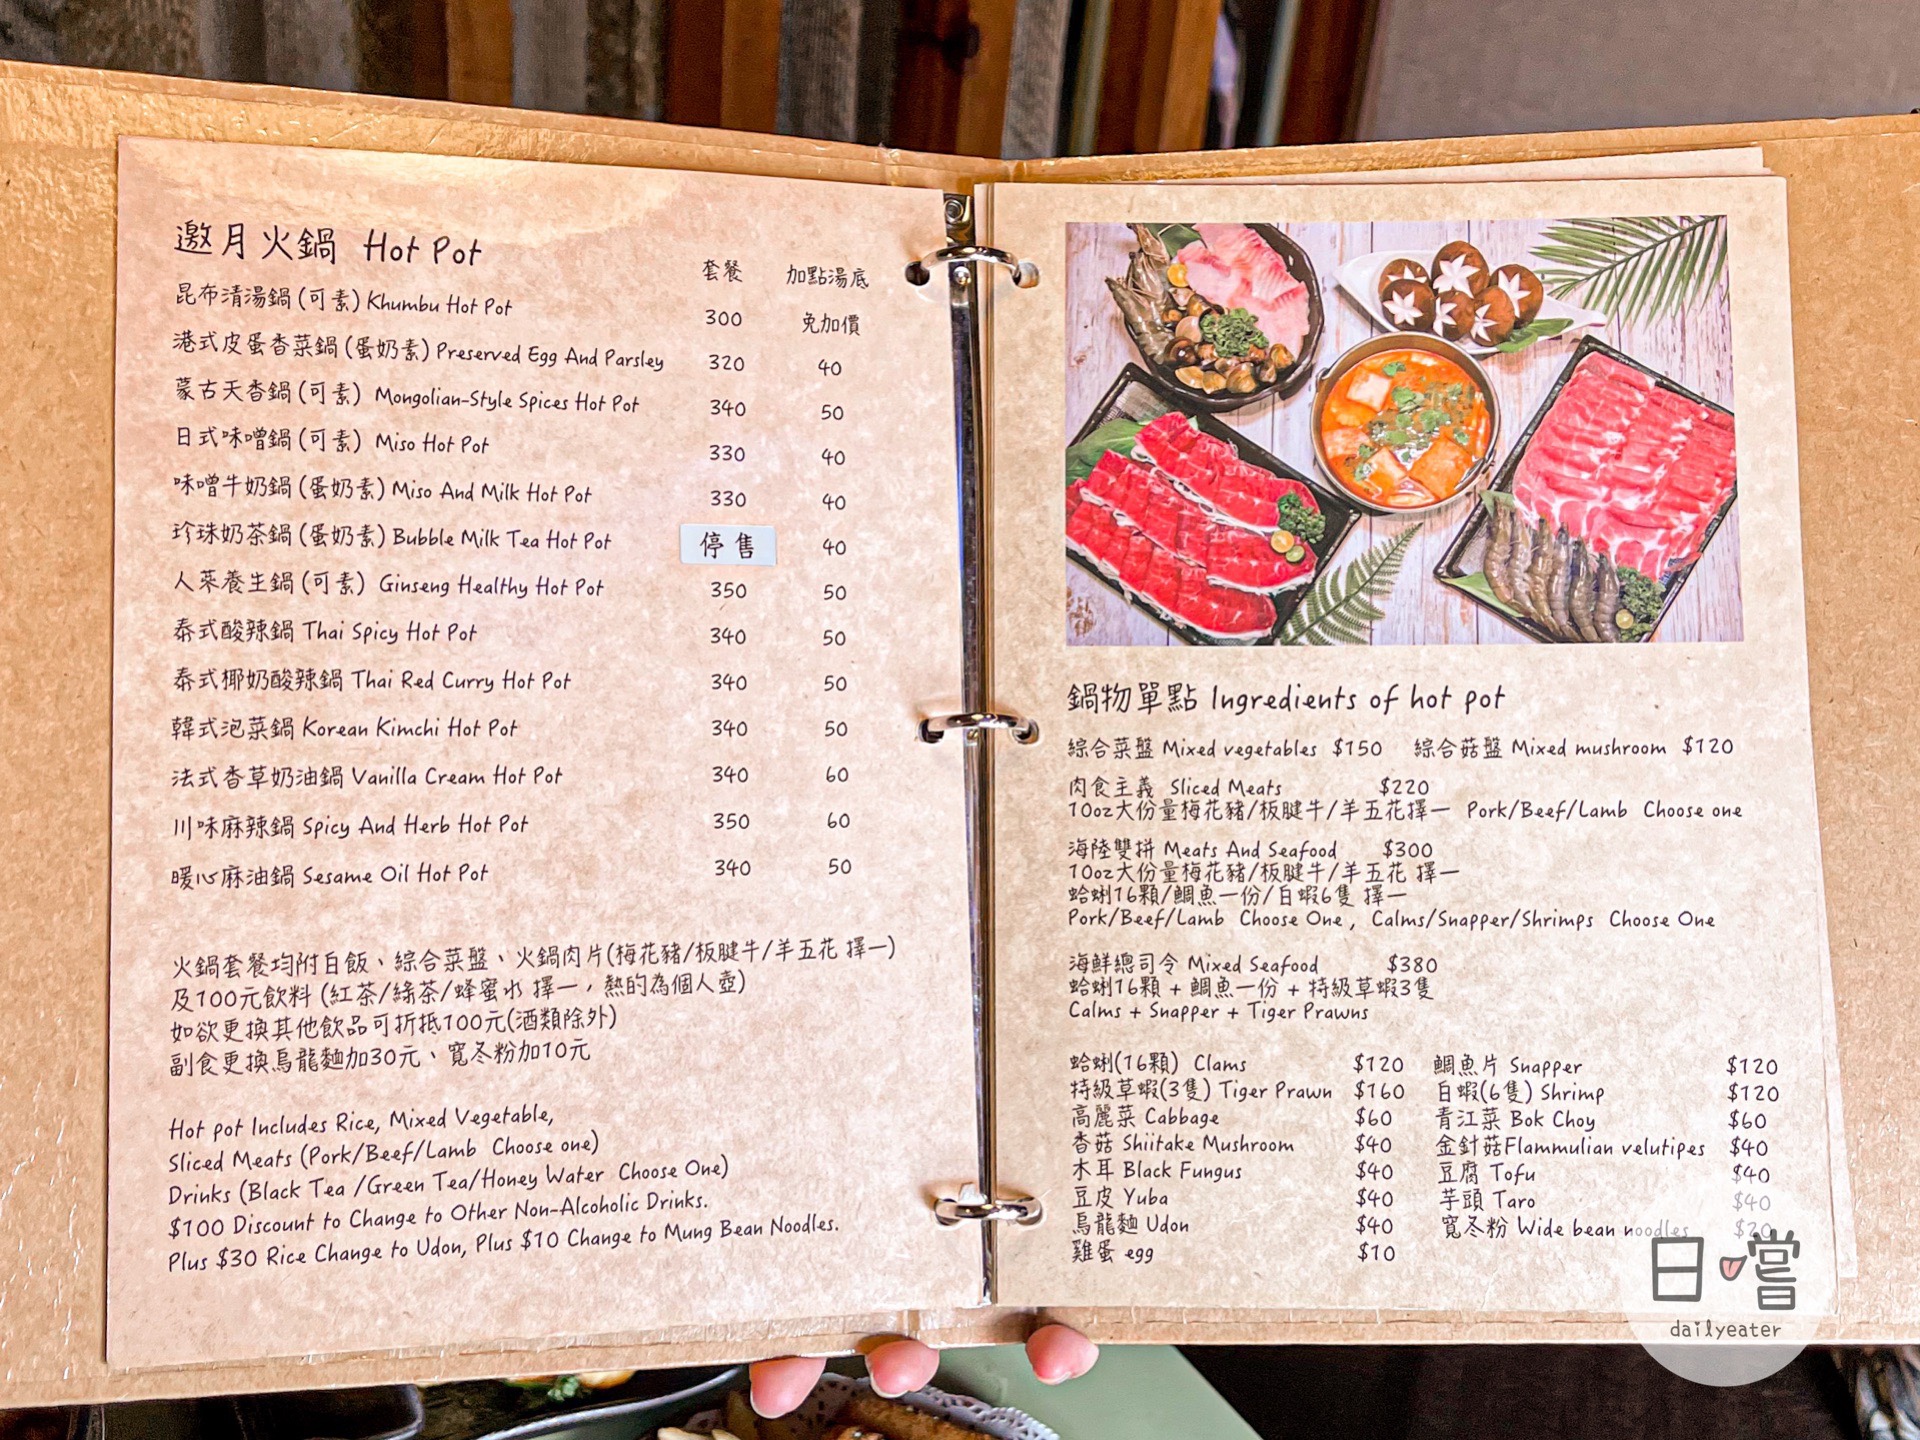 邀月火鍋 Hot Pot
套餐 加點湯底
昆布清湯鍋(可素) Khumbu Hot Pot 300 免加價
港式皮蛋香菜鍋(蛋奶素) Preserved Egg And Parsley 320 40
蒙古天香鍋(可素) Mongolian-Style Spices Hot Pot 340 50
日式味噌鍋(可素) Miso Hot Pot 330 40
味噌牛奶鍋(蛋奶素) Miso And Milk Hot Pot 330 40
珍珠奶茶鍋(蛋奶素) Bubble Milk Tea Hot Pot 停售 40
人蔘養生鍋(可素) Ginseng Healthy Hot Pot 350 50
泰式酸辣鍋 Thai Spicy Hot Pot 340 50
泰式椰奶酸辣鍋 Thai Red Curry Hot Pot 340 50
韓式泡菜鍋 Korean Kimchi Hot Pot 340 50
法式香草奶油鍋 Vanilla Cream Hot Pot 340 60
川味麻辣鍋 Spicy And Herb Hot Pot 350 60
暖心麻油鍋 Sesame Oil Hot Pot 340 50
火鍋套餐均附白飯、綜合菜盤、火鍋肉片(梅花豬/板腱牛/羊五花 擇一)
及100元飲料 (紅茶/綠茶/蜂蜜水 擇一，熱的為個人壺)
如欲更換其他飲品可折抵100元(酒類除外)
副食更換烏龍麵加30元、寬冬粉加10元
Hot pot Includes Rice, Mixed Vegetable,
Sliced Meats (Pork/Beef/Lamb Choose one)
Drinks (Black Tea /Green Tea/Honey Water Choose One)
$100 Discount to Change to Other Non-Alcoholic Drinks.
Plus $30 Rice Change to Udon, Plus $10 Change to Mung Bean Noodles.
鍋物單點 Ingredients of hot pot
綜合菜盤 Mixed vegetables $150 綜合菇盤 Mixed mushroom $120
肉食主義 Sliced Meats $220
10oz大份量梅花豬/板腱牛/羊五花擇一 Pork/Beef/Lamb Choose one
海陸雙拼 Meats And Seafood $300
10oz大份量梅花豬/板腱牛/羊五花 擇一
蛤蜊16顆/鯛魚一份/白蝦6隻 擇一
Pork/Beef/Lamb Choose One , Calms/Snapper/Shrimps Choose One
海鮮總司令 Mixed Seafood $380
蛤蜊16顆 + 鯛魚一份 + 特級草蝦3隻
Calms + Snapper + Tiger Prawns
蛤蜊(16顆) Clams $120 鯛魚片 Snapper $120
特級草蝦(3隻) Tiger Prawn $160 白蝦(6隻) Shrimp $120
高麗菜 Cabbage $60 青江菜 Bok Choy $60
香菇 Shiitake Mushroom $40 金針菇Flammulian velutipes $40
木耳 Black Fungus $40 豆腐 Tofu $40
豆皮 Yuba $40 芋頭 Taro $40
烏龍麵 Udon $40 寬冬粉 Wide bean noodles $20
雞蛋 egg $10
日嚐
dailyeater